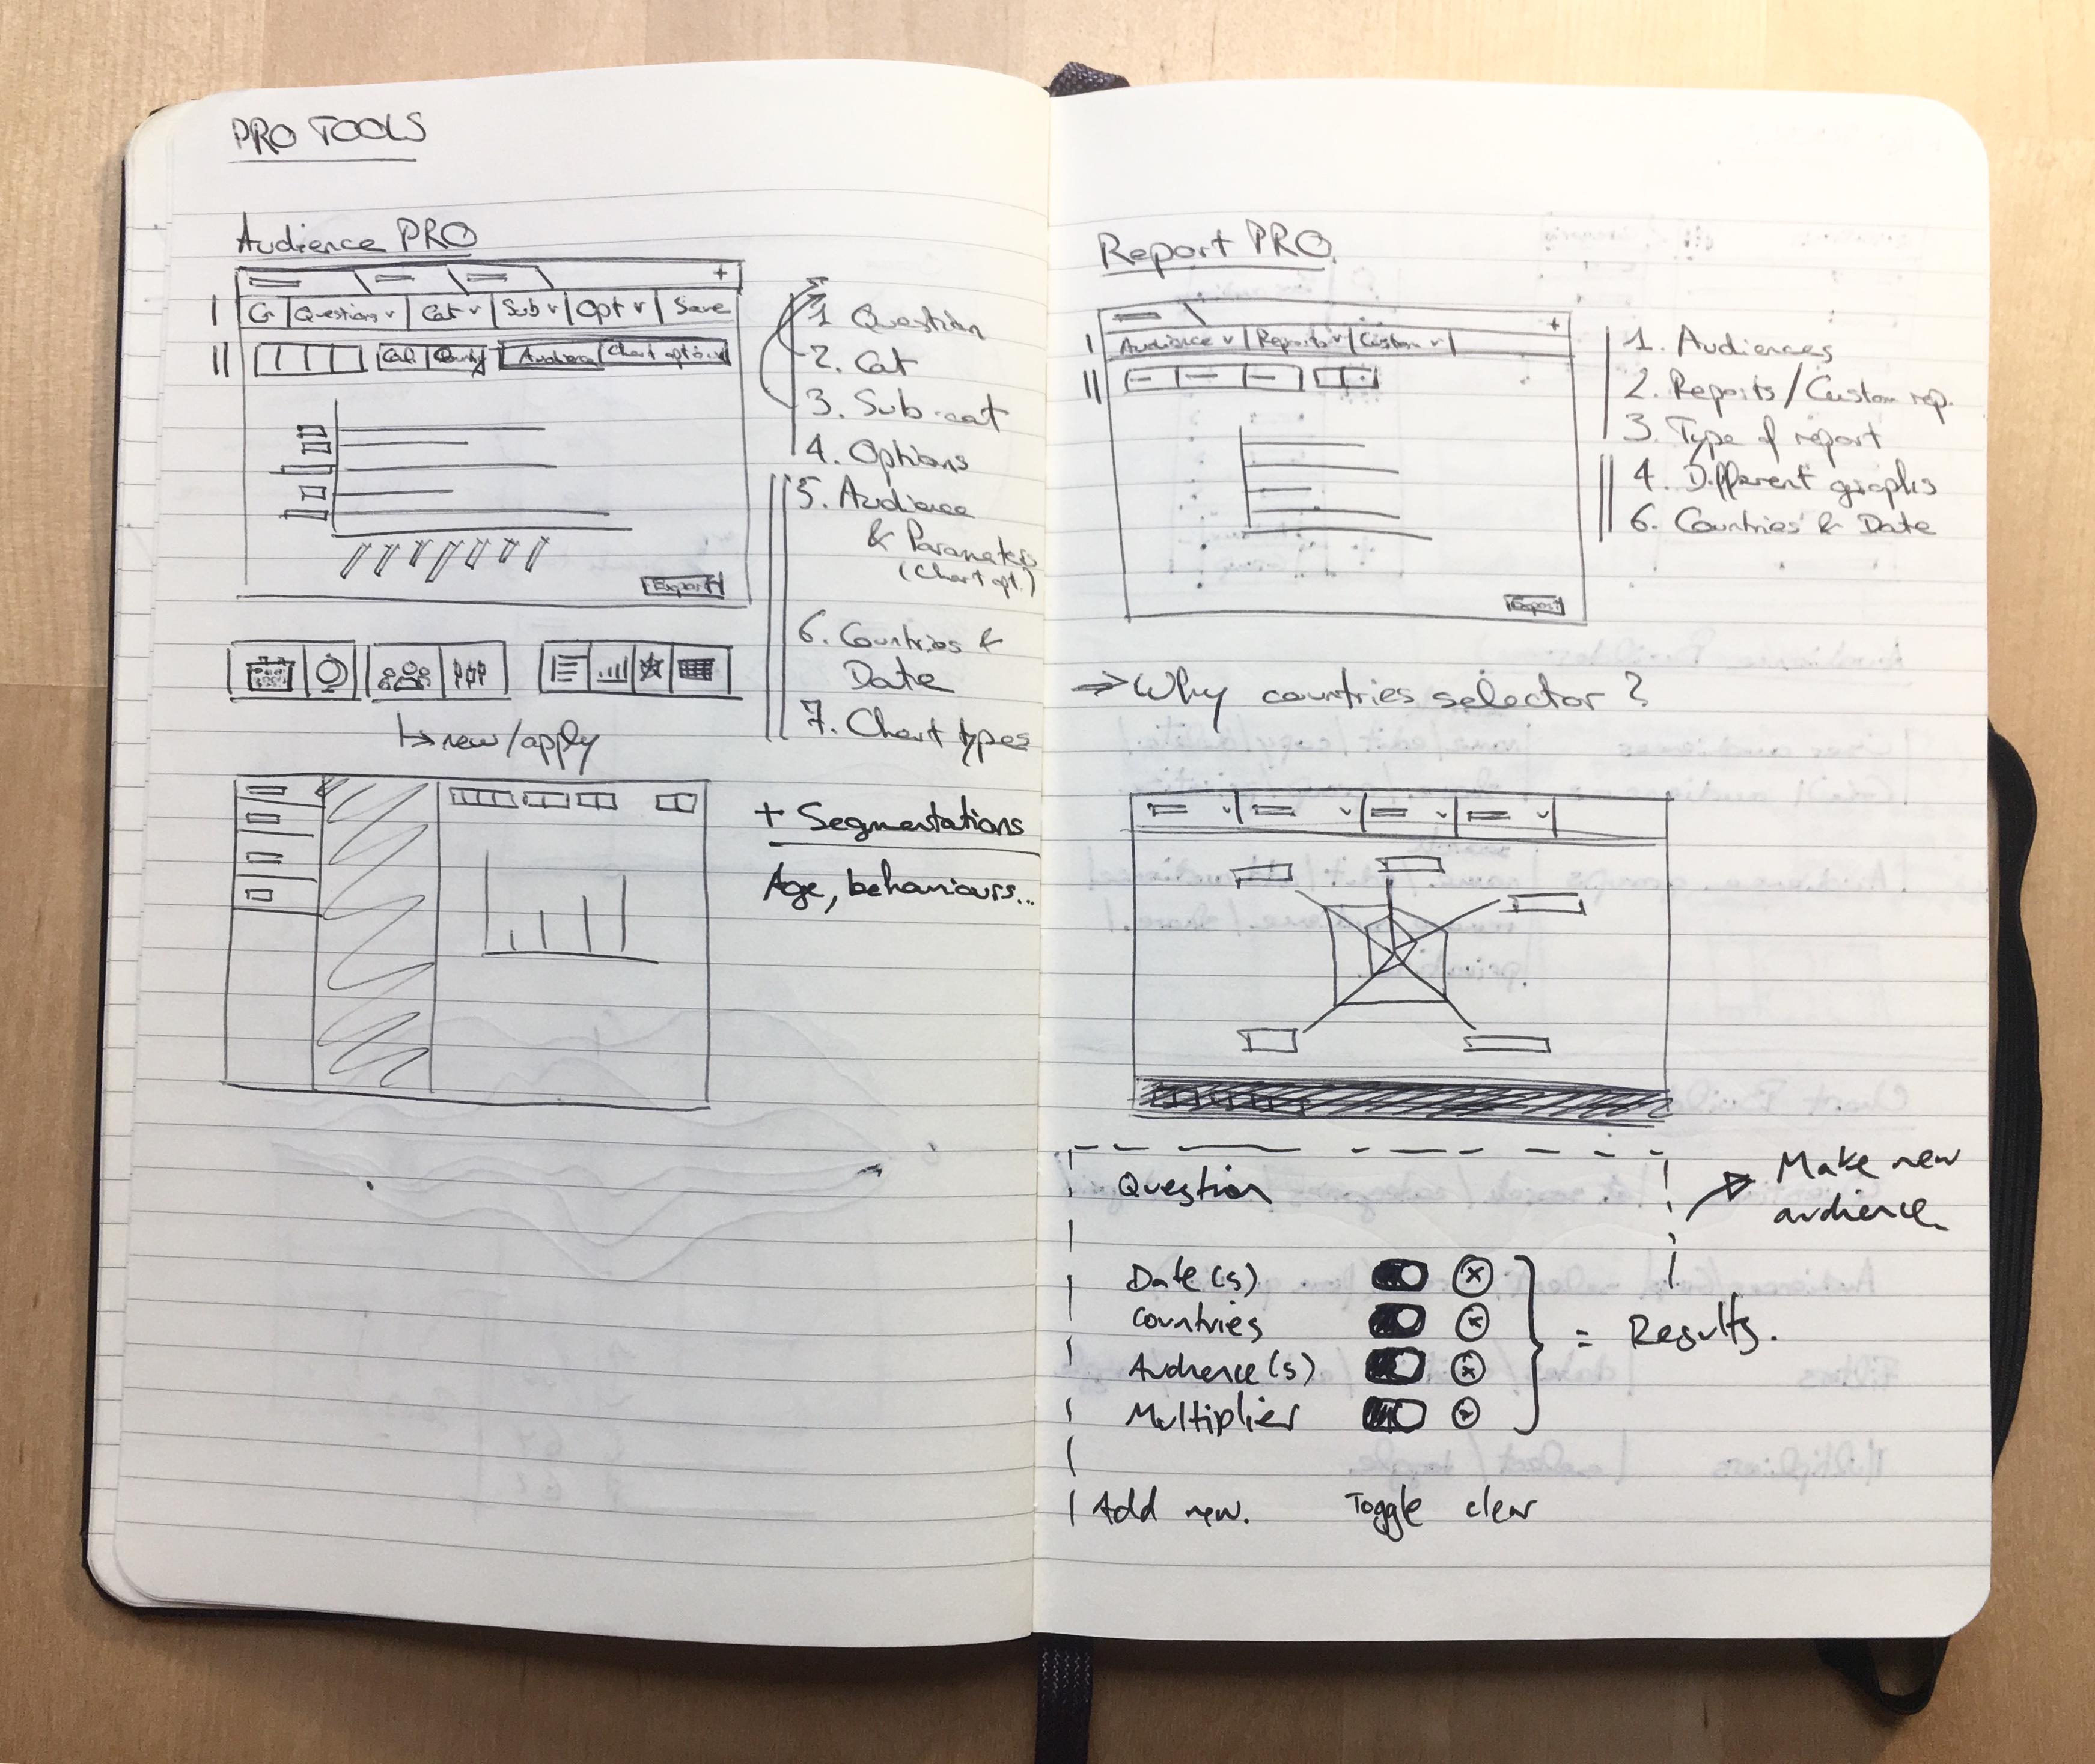 PRO TOOLS
Audience PRO
Questions Cat Sub Opt Save
Cal. Country Audience Chart options
Export
1 Question
2. Cat
3. Sub-cat
4. Options
5. Audience
& Parameters
(Chart opt.)
6. Countries &
Date
7. Chart types
new/apply
+ Segmentations
Age, behaviours...
Report PRO
Audience Reports Custom
Export
1. Audiences
2. Reports/Custom rep.
3. Type of report
4. Different graphs
6. Countries & Date
Why countries selector?
Question
Make new
audience
Date(s)
Countries
Audience(s)
Multiplier
= Results.
Add new. Toggle clear